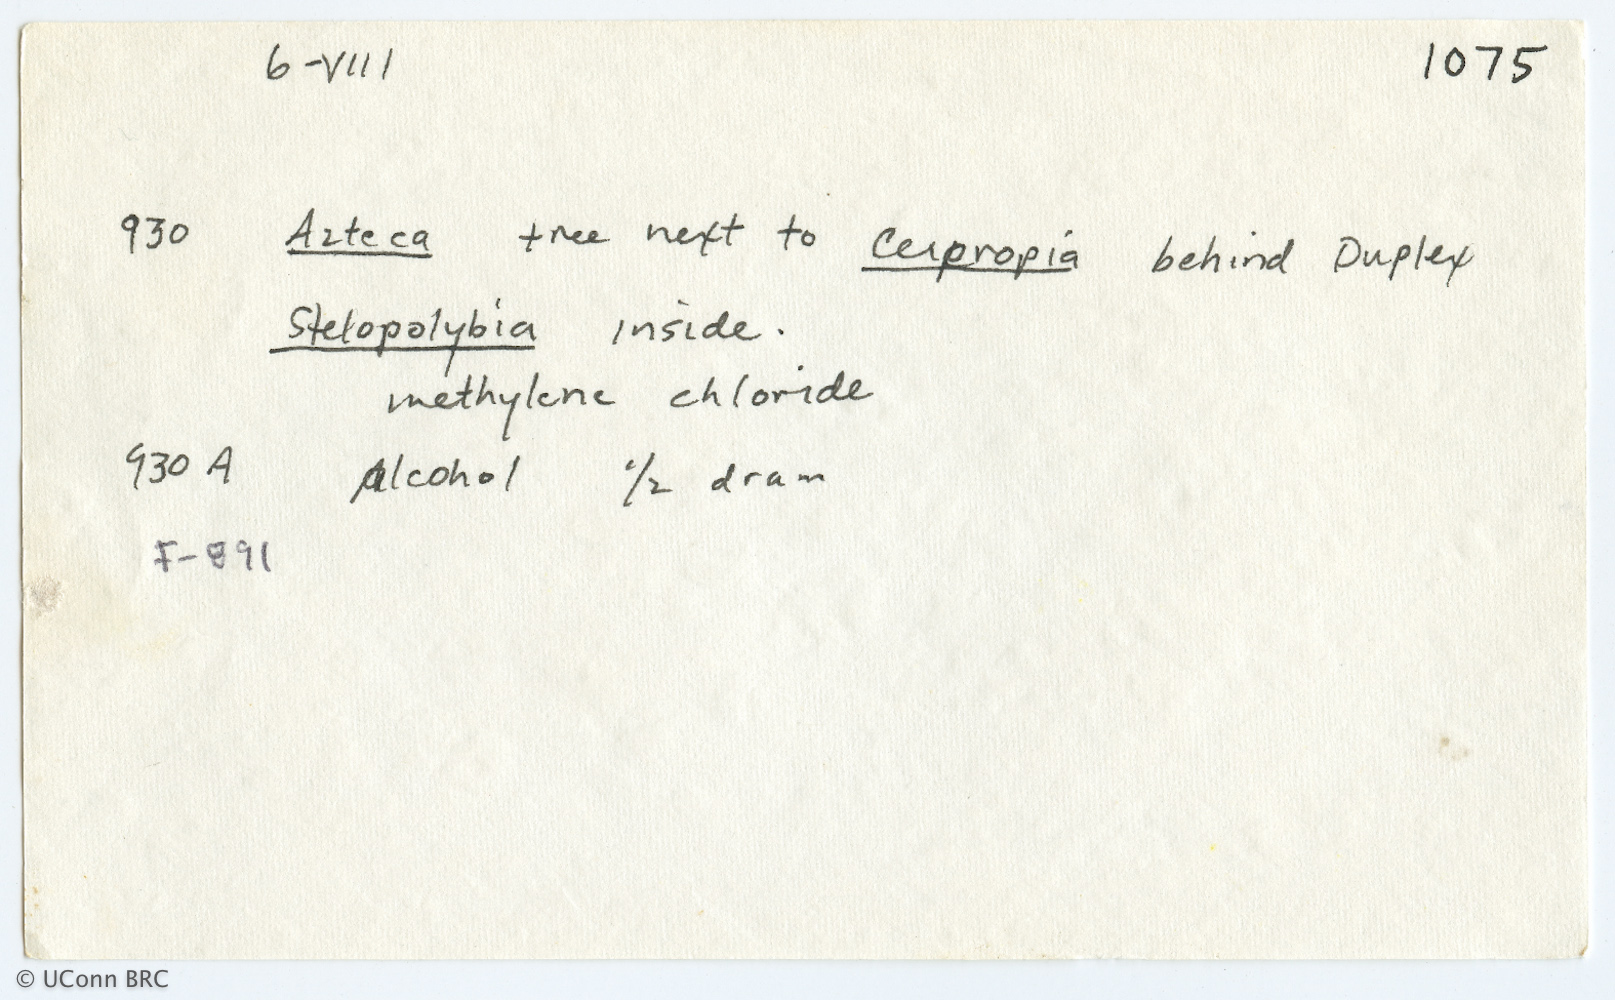 6-VIII 1075
930 Azteca tree next to Cecpropia behind Duplex
Stelopolybia inside.
methylene chloride
930 A Alcohol 1/2 dram
F-891
© UConn BRC